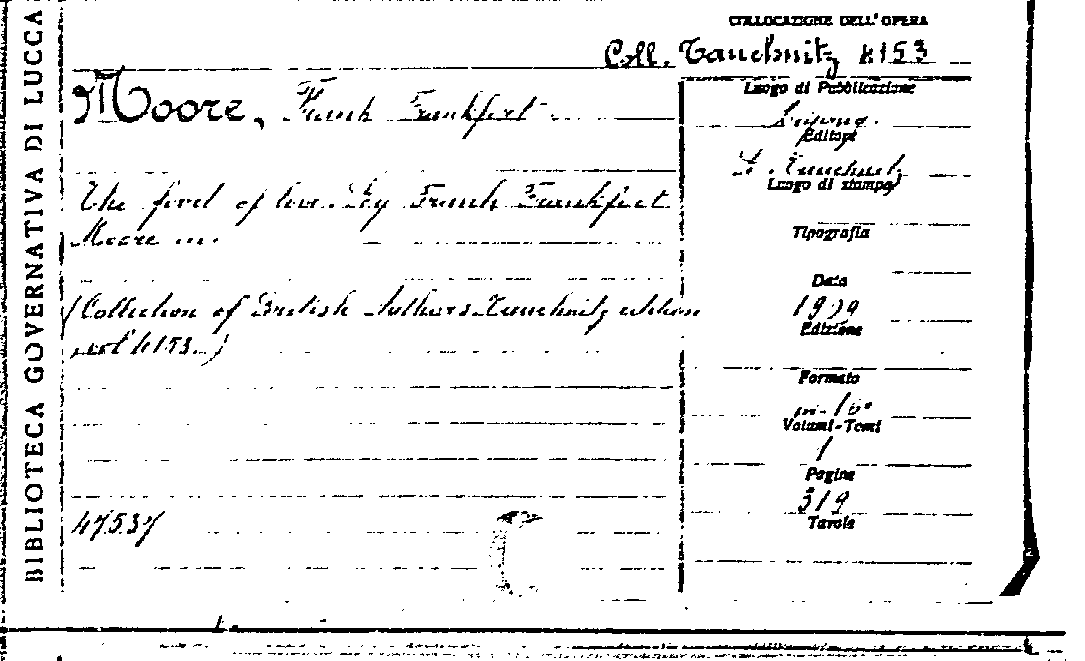 BIBLIOTECA GOVERNATIVA DI LUCCA
COLLOCAZIONE DELL'OPERA
Coll. Tauchnitz 4153
Moore, Frank Frankfort
The food of love. By Frank Frankfort
Moore ...
(Collection of British Authors. Tauchnitz edition
vol. 4153.)
47537
Luogo di Pubblicazione
Editore
Tauchnitz
Luogo di stampa
Tipografia
Data
1909
Edizione
Formato
in-16°
Volumi-Tomi
1
Pagine
319
Tavole